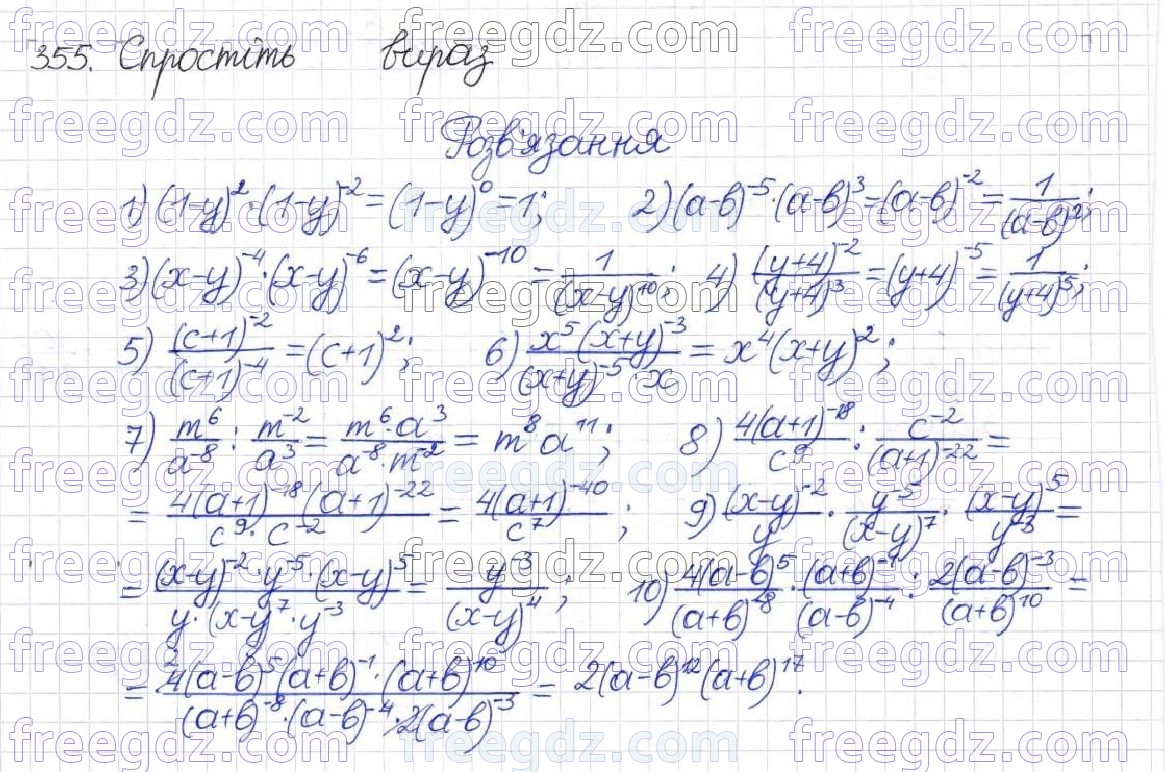 355. Спростіть вираз
Розв'язання
1) (1-y)^2·(1-y)^-2=(1-y)^0=1; 2) (a-b)^-5·(a-b)^3=(a-b)^-2=1/(a-b)^2;
3) (x-y)^-4·(x-y)^-6=(x-y)^-10=1/(x-y)^10; 4) (y+4)^-2/(y+4)^3=(y+4)^-5=1/(y+4)^5;
5) (c+1)^-2/(c+1)^-4=(c+1)^2; 6) x^5(x+y)^-3/(x+y)^-5·x=x^4(x+y)^2;
7) m^6/a^-8:m^-2/a^3=m^6·a^3/a^-8·m^-2=m^8a^11; 8) 4(a+1)^-18/c^9:c^-2/(a+1)^-22=
=4(a+1)^-18(a+1)^-22/c^9·c^-2=4(a+1)^-40/c^7; 9) (x-y)^-2/y·y^-5/(x-y)^7·(x-y)^5/y^-3=
=(x-y)^-2·y^-5·(x-y)^5/y·(x-y)^7·y^-3=y^-3/(x-y)^4; 10) 4(a-b)^5/(a+b)^-8·(a+b)^-1/(a-b)^-4:2(a-b)^-3/(a+b)^10=
=4(a-b)^5(a+b)^-1·(a+b)^10/(a+b)^-8·(a-b)^-4·2(a-b)^-3=2(a-b)^12(a+b)^17.
freegdz.com